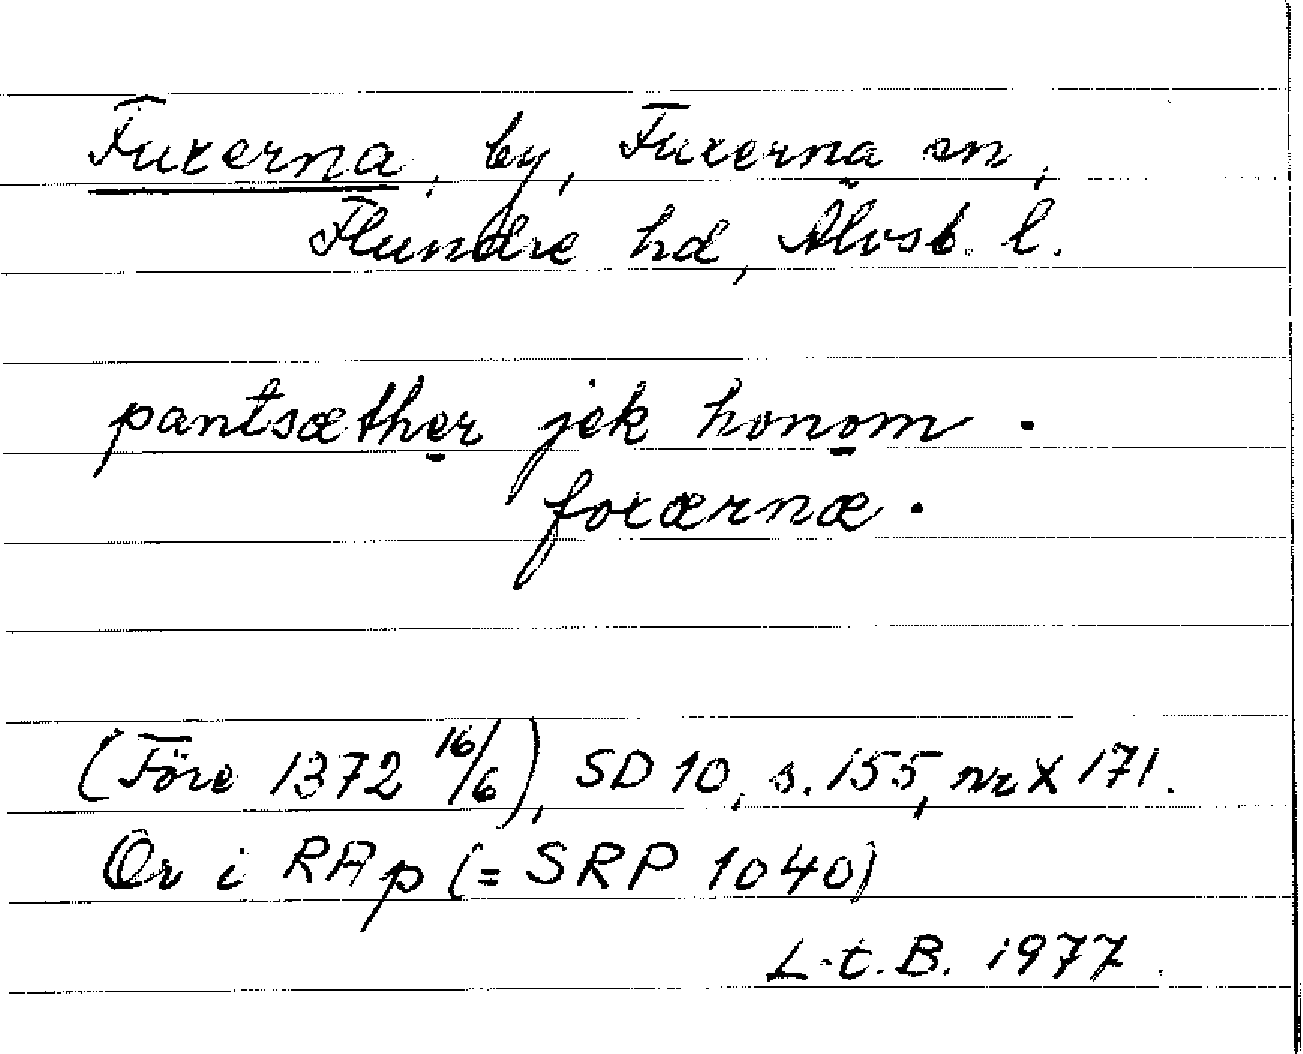 Fuxerna, by, Fuxerna sn,
Flundre hd, Älvsb. l.
pantsæther jek honom .
foxærnæ .
(Före 1372 16/6), SD 10, s. 155, nr X 171.
Or i RAp (= SRP 1040)
L.t.B. 1977.